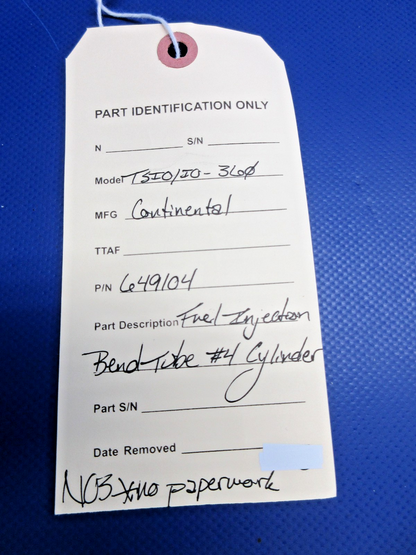 PART IDENTIFICATION ONLY
N S/N
Model TSIO/IO-360
MFG Continental
TTAF
P/N 649104
Part Description Fuel Injection
Bend Tube #4 Cylinder
Part S/N
Date Removed
NOS no paperwork